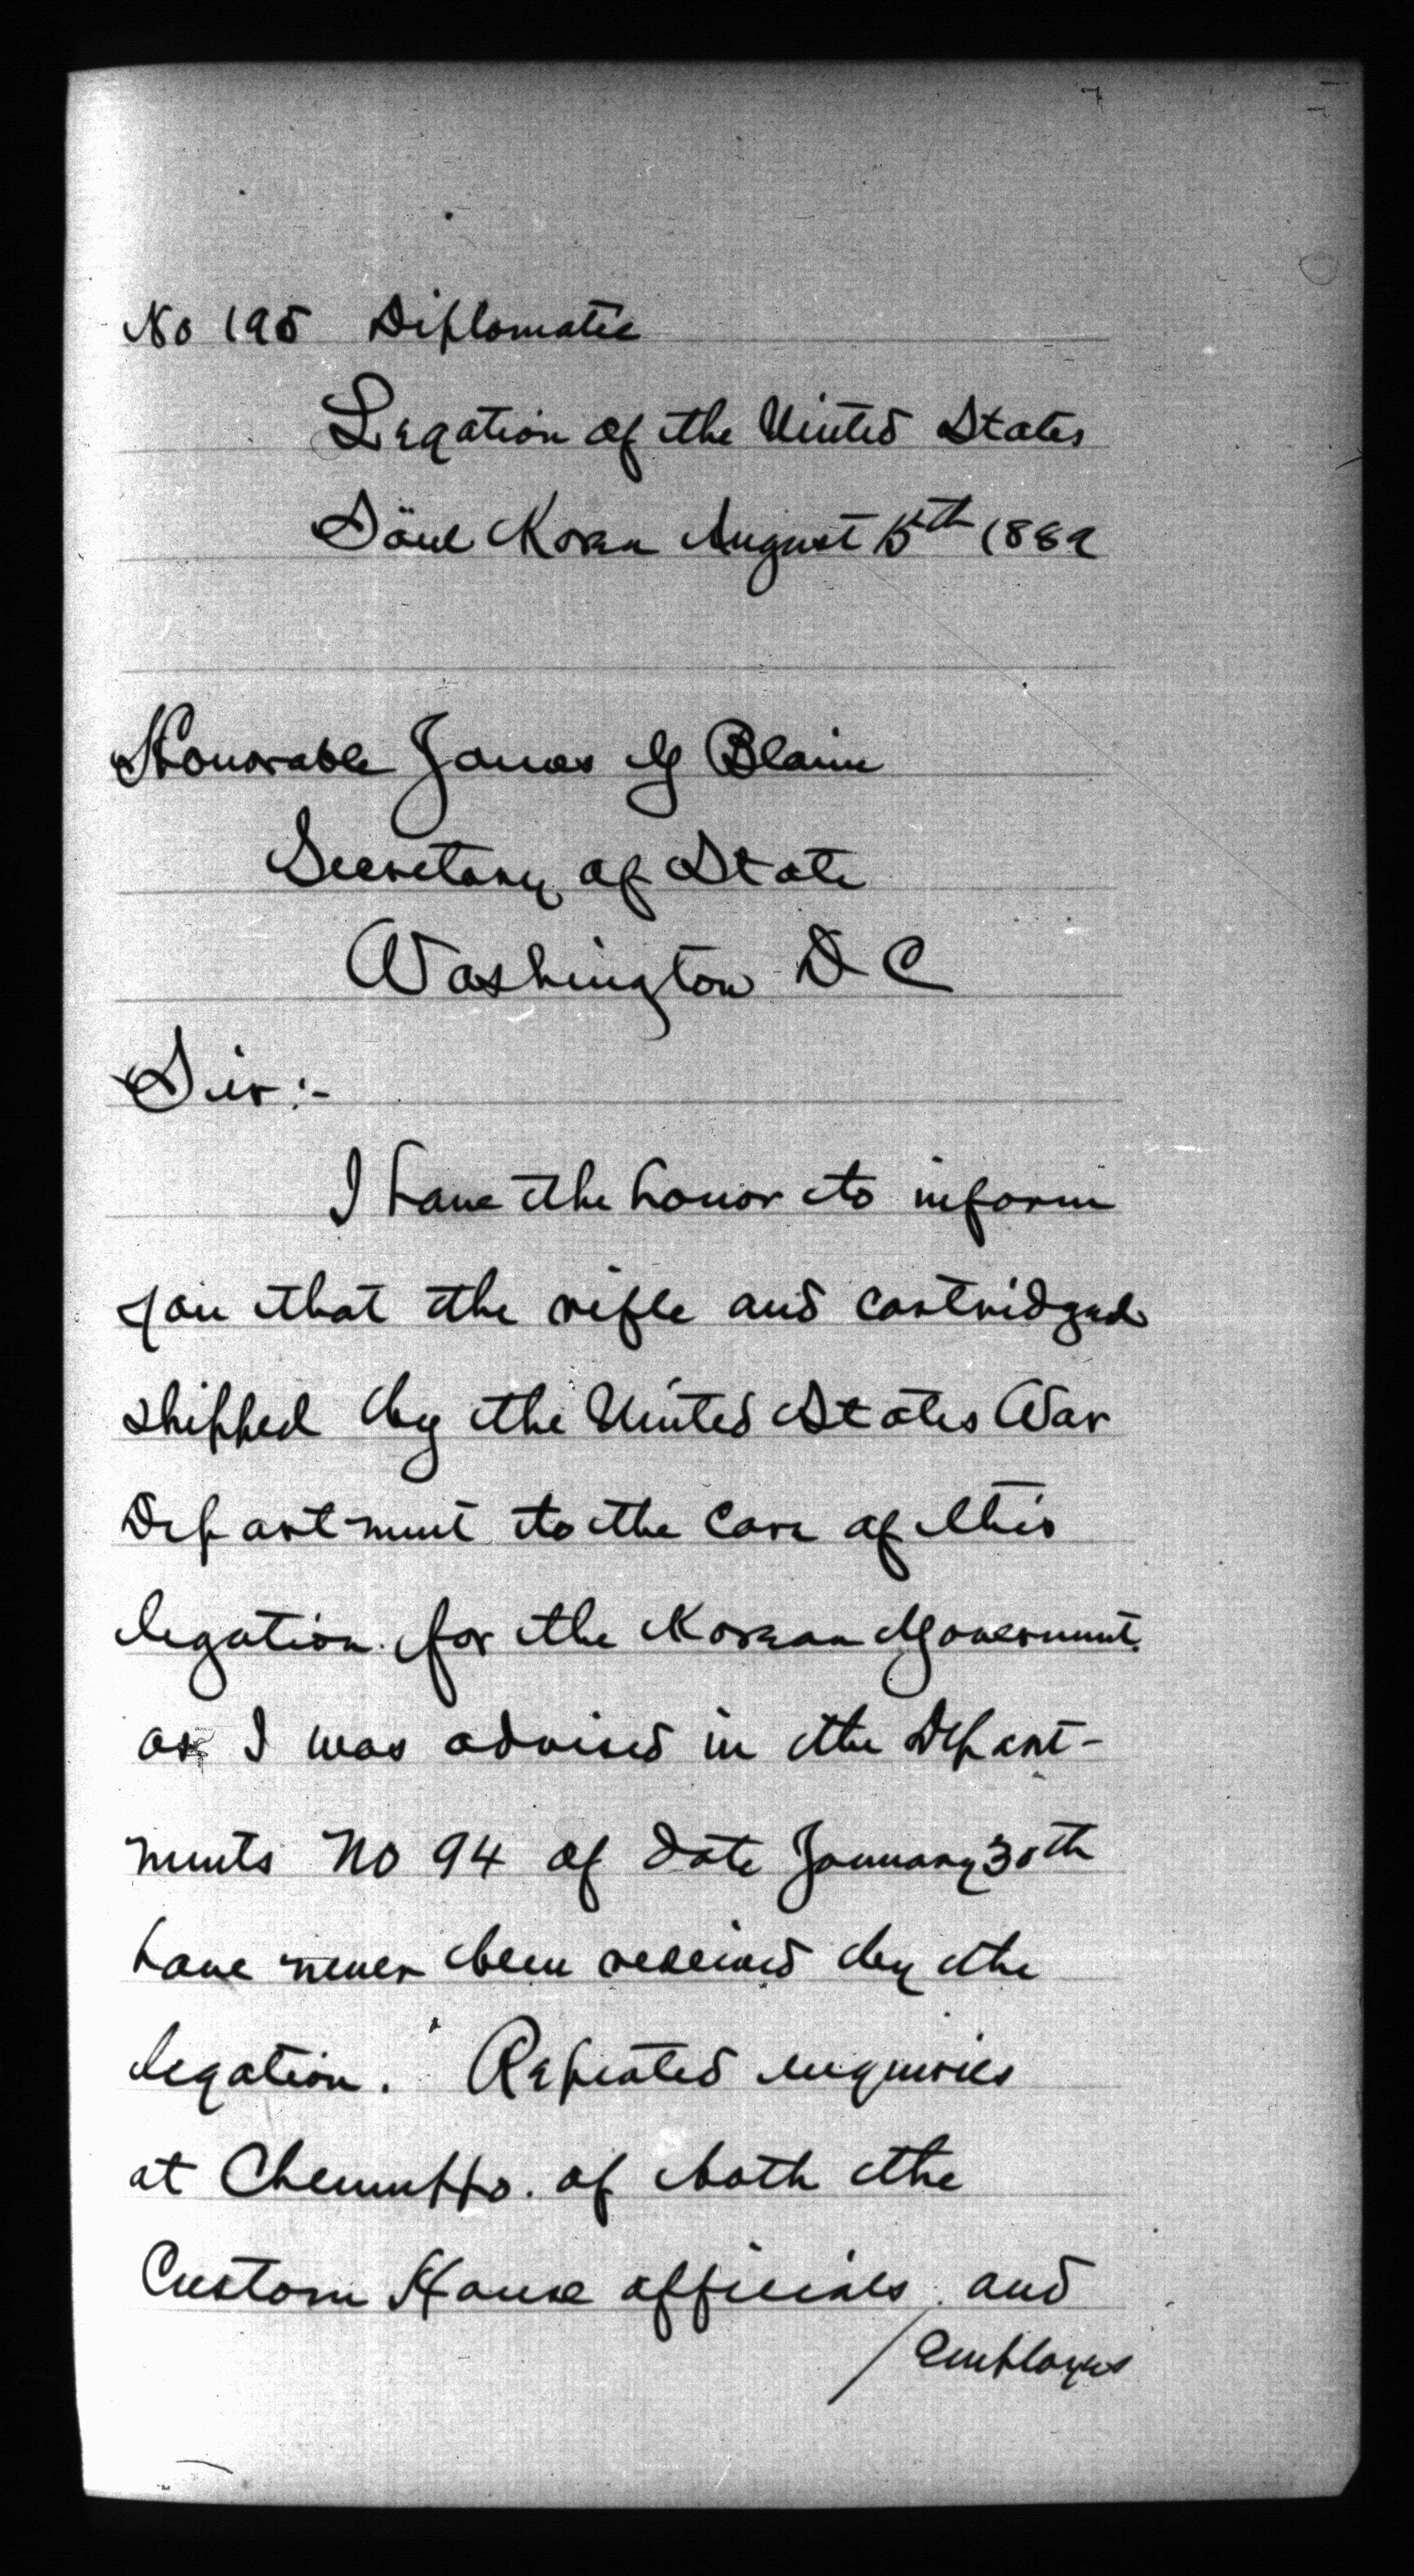 No 195 Diplomatic
Legation of the United States
Söul Korea August 15th 1889
Honorable James G Blaine
Secretary of State
Washington D C
Sir:-
I have the honor to inform
you that the rifle and cartridges
shipped by the United States War
Department to the care of this
legation for the Korean Government
as I was advised in the Depart-
ments No 94 of date January 30th
have never been received by the
legation. Repeated enquiries
at Chemulpo. of both the
Custom House officials and
/ employes